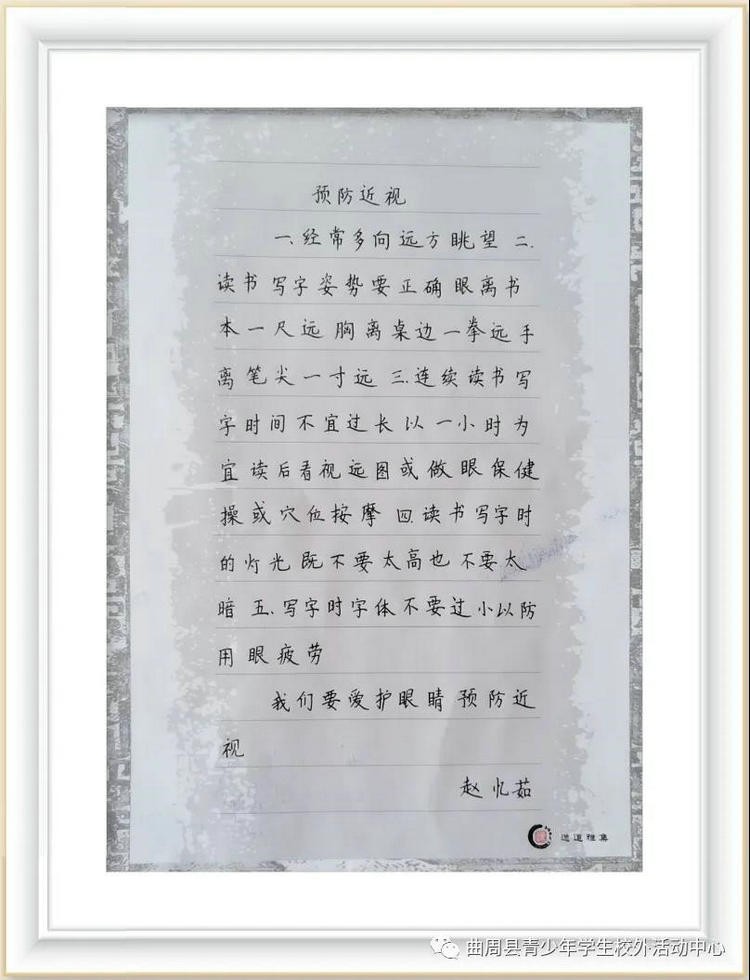 预防近视
一.经常多向远方眺望 二.
读书 写字 姿势要正确 眼离书
本一尺远 胸离桌边一拳远手
离笔尖一寸远 三.连续读书写
字时间不宜过长以一小时为
宜 读后看视远图或做眼保健
操或穴位按摩 四.读书写字时
的灯光既不要太高也不要太
暗 五.写字时字体不要过小以防
用眼疲劳
我们要爱护眼睛 预防近
视
赵忆茹
逸道雅集
曲周县青少年学生校外活动中心